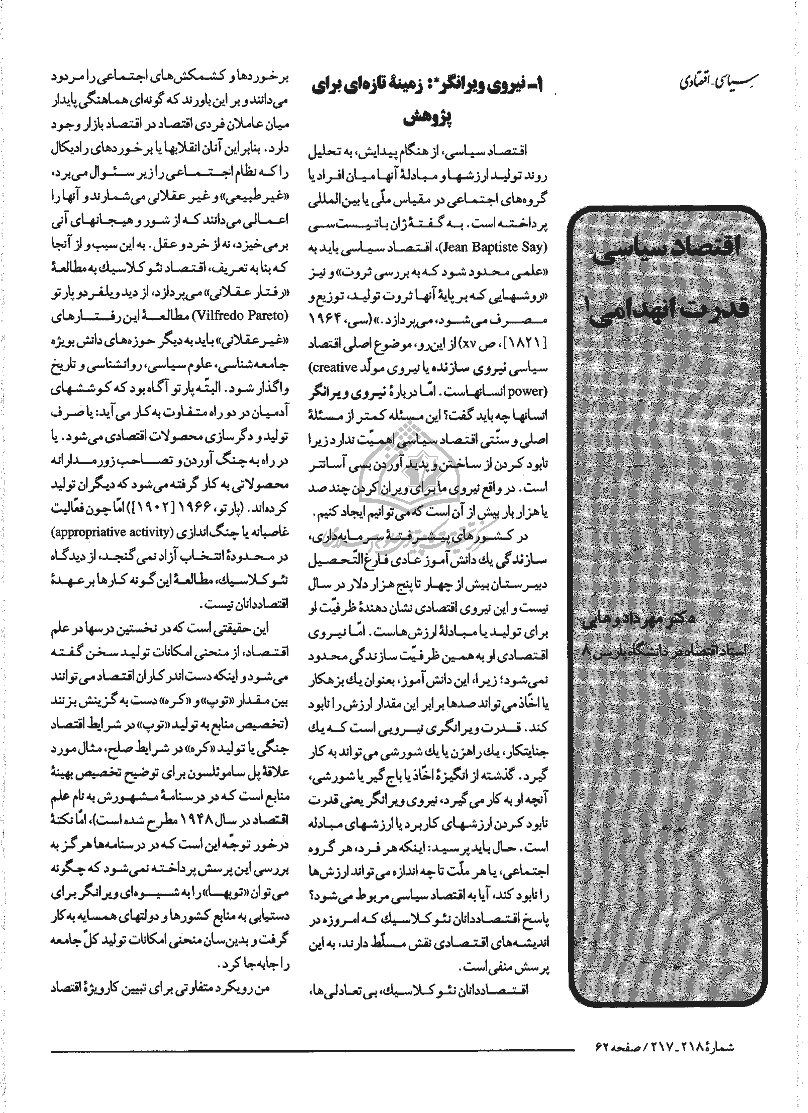 سیاسی - اقتصادی
اقتصاد سیاسی
قدرت انهدامی ۱
دکتر مهرداد وهابی
استاد اقتصاد در دانشگاه پاریس ۸
۱ـ نیروی ویرانگر*: زمینهٔ تازه‌ای برای
پژوهش
اقتصاد سیاسی، از هنگام پیدایش، به تحلیل
روند تولید ارزشها و مبادلهٔ آنها میان افراد یا
گروه‌های اجتماعی در مقیاس ملّی یا بین‌المللی
پرداخته است. به گفتهٔ ژان باتیست سی
(Jean Baptiste Say)، اقتصاد سیاسی باید به
«علمی محدود شود که به بررسی ثروت» و نیز
«روشهایی که بر پایهٔ آنها ثروت تولید، توزیع و
مصرف می‌شود، می‌پردازد.» (سی، ۱۹۶۴
[۱۸۲۱]، ص xv) از این‌رو، موضوع اصلی اقتصاد
سیاسی نیروی سازنده یا نیروی مولّد (creative
power) انسانهاست. امّا دربارهٔ نیروی ویرانگر
انسانها چه باید گفت؟ این مسئله کمتر از مسئلهٔ
اصلی و سنّتی اقتصاد سیاسی اهمیّت ندارد زیرا
نابود کردن از ساختن و پدید آوردن بسی آسانتر
است. در واقع نیروی ما برای ویران کردن چند صد
یا هزار بار بیش از آن است که می‌توانیم ایجاد کنیم.
در کشورهای پیشرفتهٔ سرمایه‌داری،
سازندگی یك دانش‌آموز عادی فارغ‌التّحصیل
دبیرستان بیش از چهار تا پنج هزار دلار در سال
نیست و این نیروی اقتصادی نشان دهندهٔ ظرفیّت او
برای تولید یا مبادلهٔ ارزش‌هاست. امّا نیروی
اقتصادی او به همین ظرفیّت سازندگی محدود
نمی‌شود؛ زیرا، این دانش‌آموز، بعنوان یك بزهکار
یا اخّاذ می‌تواند صدها برابر این مقدار ارزش را نابود
کند. قدرت ویرانگری نیرویی است که یك
جنایتکار، یك راهزن یا یك شورشی می‌تواند به کار
گیرد. گذشته از انگیزهٔ اخّاذ یا باج گیر یا شورشی،
آنچه او به کار می‌گیرد، نیروی ویرانگر یعنی قدرت
نابود کردن ارزشهای کاربرد یا ارزشهای مبادله
است. حال باید پرسید: اینکه هر فرد، هر گروه
اجتماعی، یا هر ملّت تا چه اندازه می‌تواند ارزش‌ها
را نابود کند، آیا به اقتصاد سیاسی مربوط می‌شود؟
پاسخ اقتصاددانان نئوکلاسیك که امروزه در
اندیشه‌های اقتصادی نقش مسلّط دارند، به این
پرسش منفی است.
اقتصاددانان نئوکلاسیك، بی‌تعادلی‌ها،
برخوردها و کشمکش‌های اجتماعی را مردود
می‌دانند و بر این باورند که گونه‌ای هماهنگی پایدار
میان عاملان فردی اقتصاد در اقتصاد بازار وجود
دارد. بنابراین آنان انقلابها یا برخوردهای رادیکال
را که نظام اجتماعی را زیر سئوال می‌برد،
«غیر طبیعی» و غیر عقلانی می‌شمارند و آنها را
اعمالی می‌دانند که از شور و هیجانهای آنی
برمی‌خیزد، نه از خرد و عقل. به این سبب و از آنجا
که بنا به تعریف، اقتصاد نئوکلاسیك به مطالعهٔ
«رفتار عقلانی» می‌پردازد، از دید ویلفردو پارتو
(Vilfredo Pareto) مطالعهٔ این رفتارهای
«غیر عقلانی» باید به دیگر حوزه‌های دانش بویژه
جامعه‌شناسی، علوم سیاسی، روانشناسی و تاریخ
واگذار شود. البتّه پارتو آگاه بود که کوششهای
آدمیان در دو راه متفاوت به کار می‌آید: یا صرف
تولید و دگرسازی محصولات اقتصادی می‌شود. یا
در راه به چنگ آوردن و تصاحب زورمدارانه
محصولاتی به کار گرفته می‌شود که دیگران تولید
کرده‌اند. (پارتو، ۱۹۶۶ [۱۹۰۲]) امّا چون فعّالیت
غاصبانه یا چنگ‌اندازی (appropriative activity)
در محدودهٔ انتخاب آزاد نمی‌گنجد، از دیدگاه
نئوکلاسیك، مطالعهٔ این گونه کارها بر عهدهٔ
اقتصاددانان نیست.
این حقیقتی است که در نخستین درسها در علم
اقتصاد، از منحنی امکانات تولید سخن گفته
می‌شود و اینکه دست‌اندرکاران اقتصاد می‌توانند
بین مقدار «توپ» و «کره» دست به گزینش بزنند
(تخصیص منابع به تولید «توپ» در شرایط اقتصاد
جنگی یا تولید «کره» در شرایط صلح، مثال مورد
علاقهٔ پل ساموئلسون برای توضیح تخصیص بهینهٔ
منابع است که در درسنامهٔ مشهورش به نام علم
اقتصاد در سال ۱۹۴۸ مطرح شده است)، امّا نکتهٔ
درخور توجّه این است که در درسنامه‌ها هرگز به
بررسی این پرسش پرداخته نمی‌شود که چگونه
می‌توان «توپها» را به شیوه‌ای ویرانگر برای
دستیابی به منابع کشورها و دولتهای همسایه به کار
گرفت و بدین‌سان منحنی امکانات تولید کلّ جامعه
را جابه‌جا کرد.
من رویکرد متفاوتی برای تبیین کارویژهٔ اقتصاد
شمارهٔ ۲۱۸ـ۲۱۷ / صفحه ۶۲